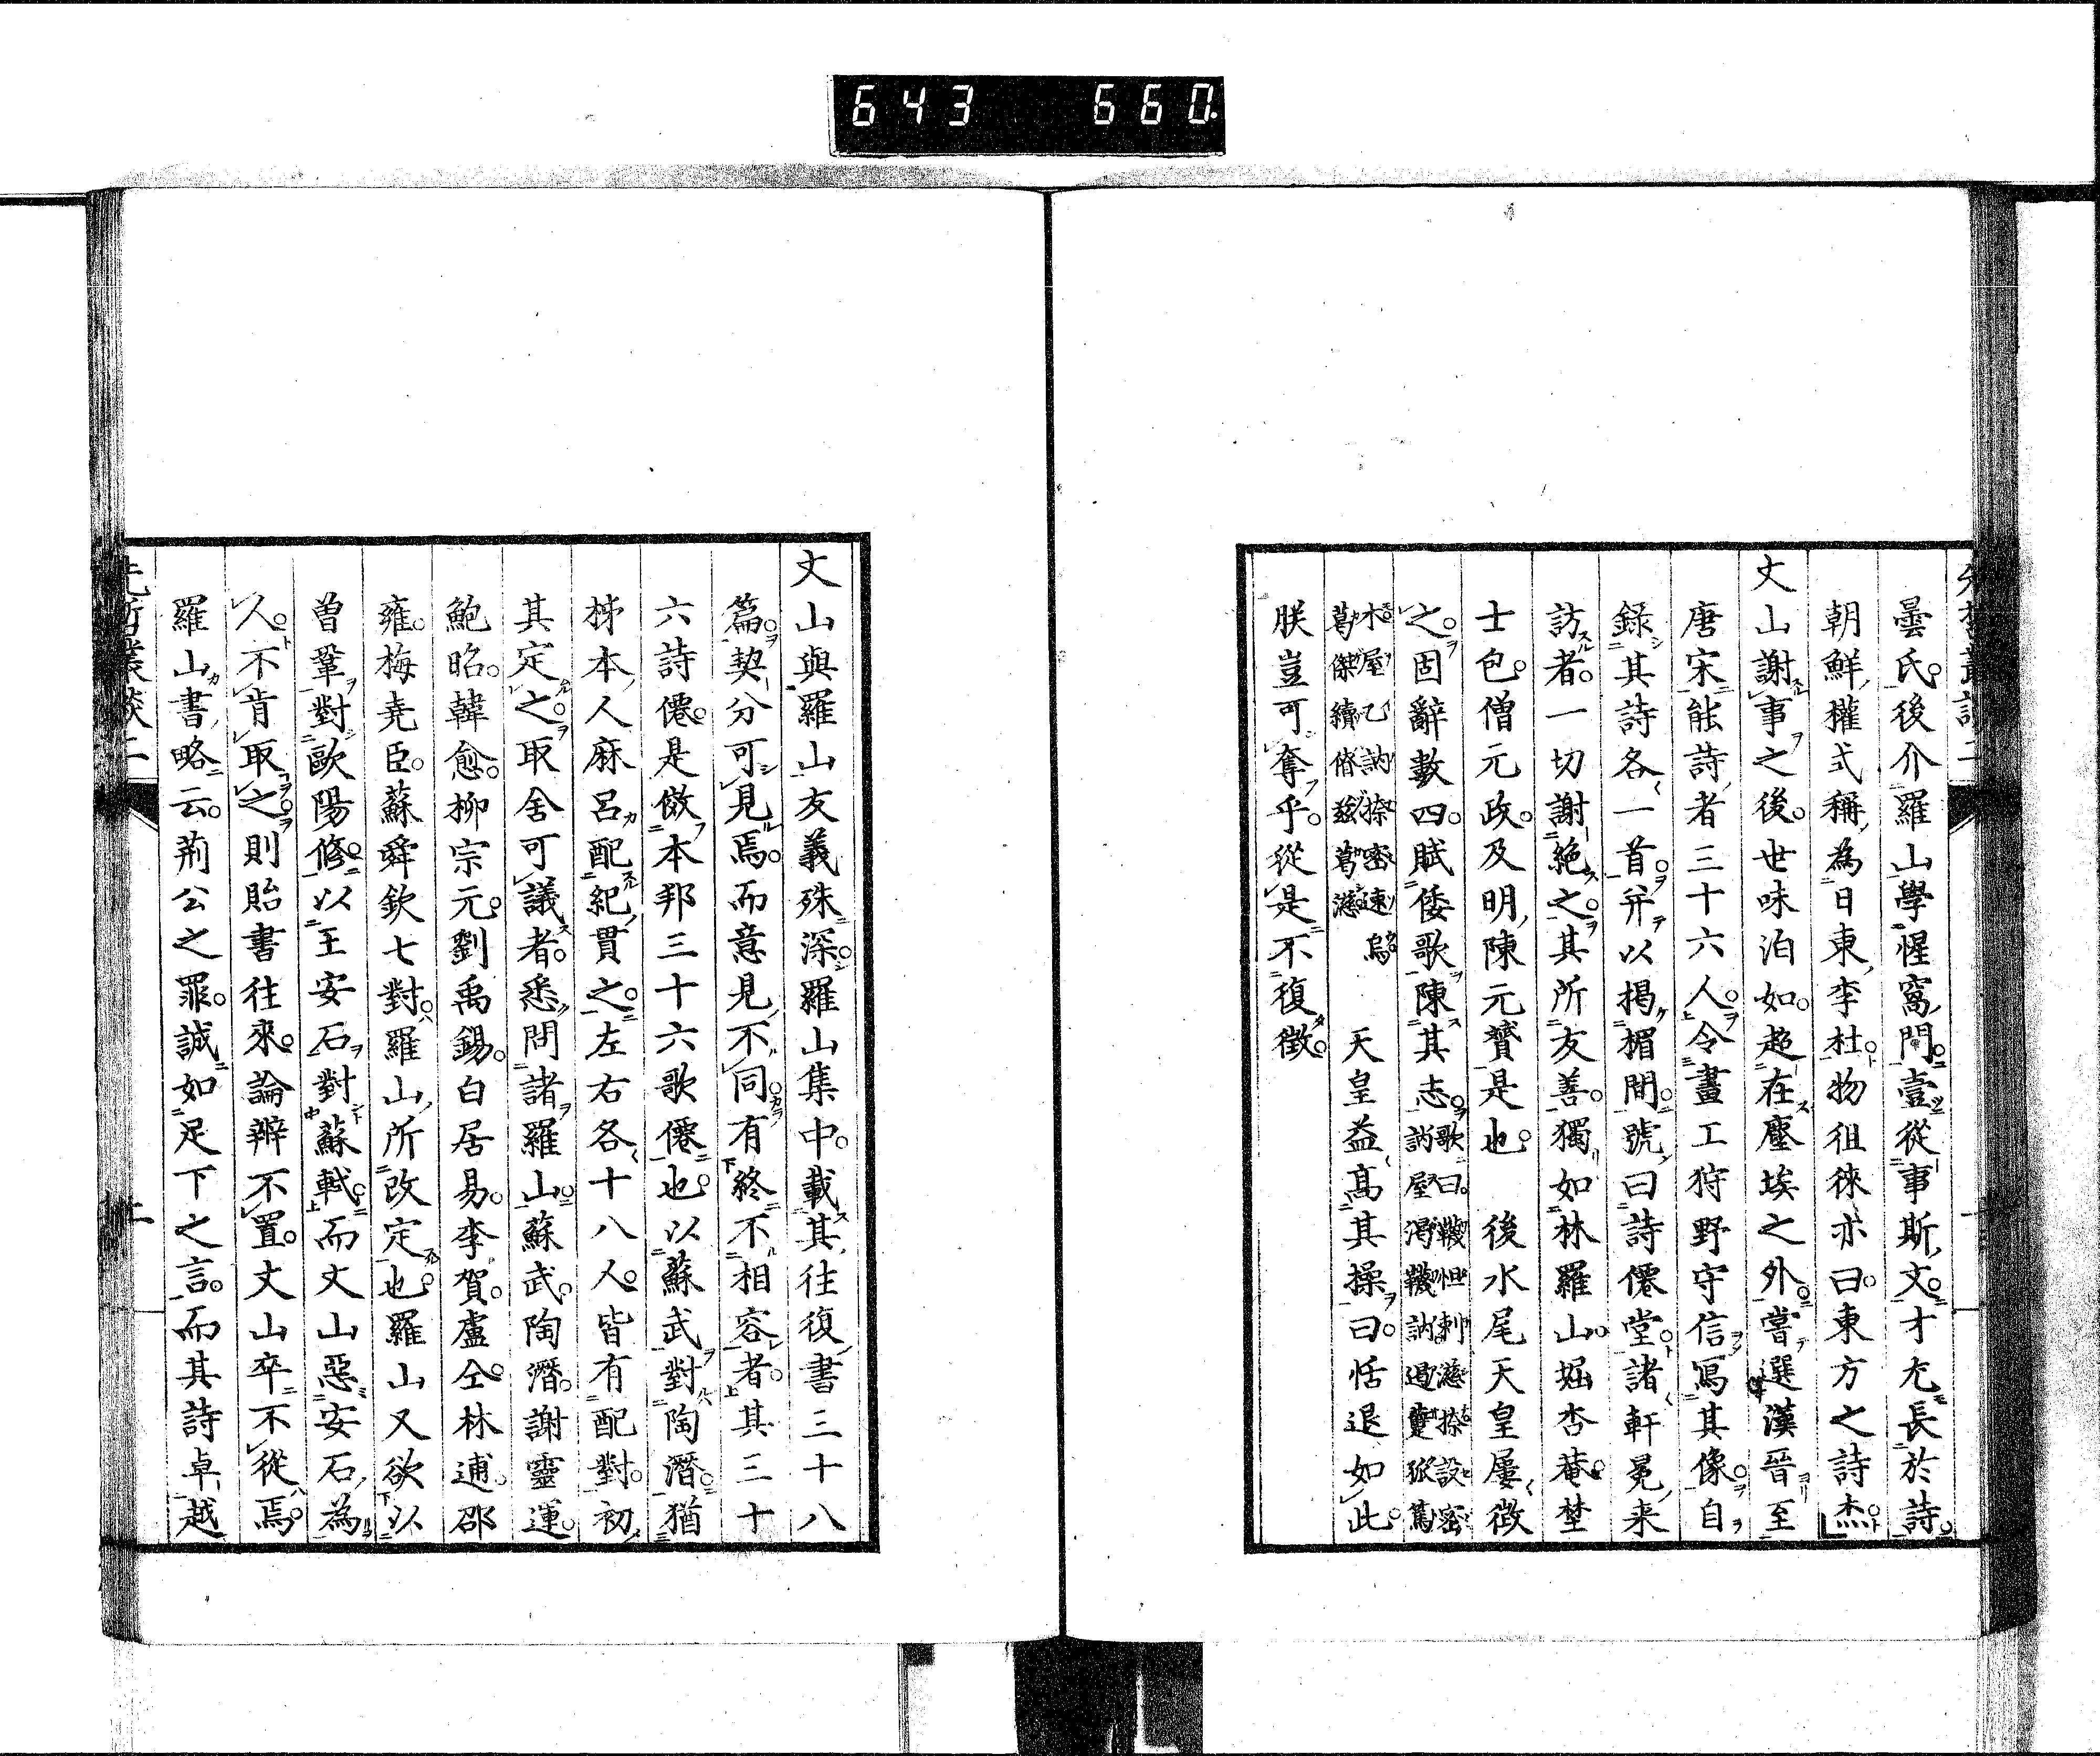 643 660
曇氏。後介羅山學惺窩門。壹從事斯文。才尤長於詩。
朝鮮權式稱為日東李杜。物徂徠亦曰。東方之詩杰。
丈山謝事之後。世味泊如。超在塵埃之外。嘗選漢晉至
唐宋能詩者三十六人。令畫工狩野守信寫其像。自
錄其詩各一首。并以揭楣間。號曰詩僊堂。諸軒冕来
訪者。一切謝絕之。其所友善。獨如林羅山。堀杏菴。埜
士包。僧元政。及明陳元贇是也。 後水尾天皇屢徵
之。固辭數四。賦倭歌陳其志。
朕豈可奪乎。從是不復徵。
天皇益高其操。曰。恬退如此。
丈山與羅山友義殊深。羅山集中。載其往復書三十八
篇。契分可見焉。而意見不同。有終不相容者。其三十
六詩僊。是傚本邦三十六歌僊也。以蘇武對陶潛。猶
柹本人麻呂配紀貫之。左右各十八人。皆有配對。初
其定之。取舍可議者。悉問諸羅山。蘇武。陶潛。謝靈運。
鮑昭。韓愈。柳宗元。劉禹錫。白居易。李賀。盧仝。林逋。邵
雍。梅堯臣。蘇舜欽七對。羅山所改定也。羅山又欲以
曽鞏對歐陽修。以王安石對蘇軾。而丈山惡安石為
人。不肯取之。則貽書往來。論辨不置。丈山卒不從焉。
羅山書略云。荊公之罪。誠如足下之言。而其詩卓越